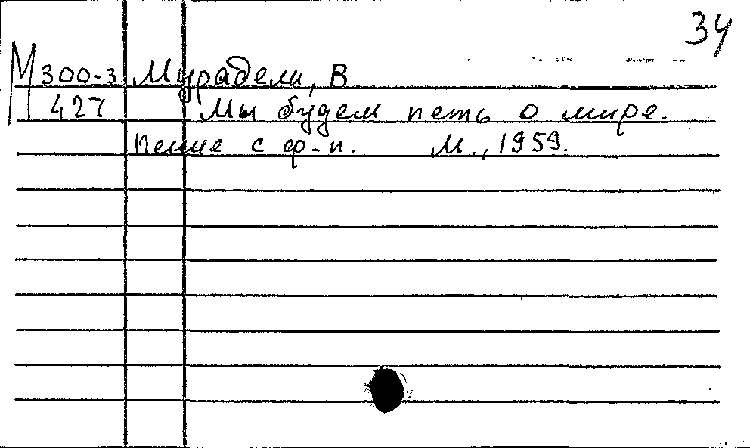 34
М 300-3 Мурадели, В
427 Мы будем петь о мире.
Пение с ф-п. М., 1959.